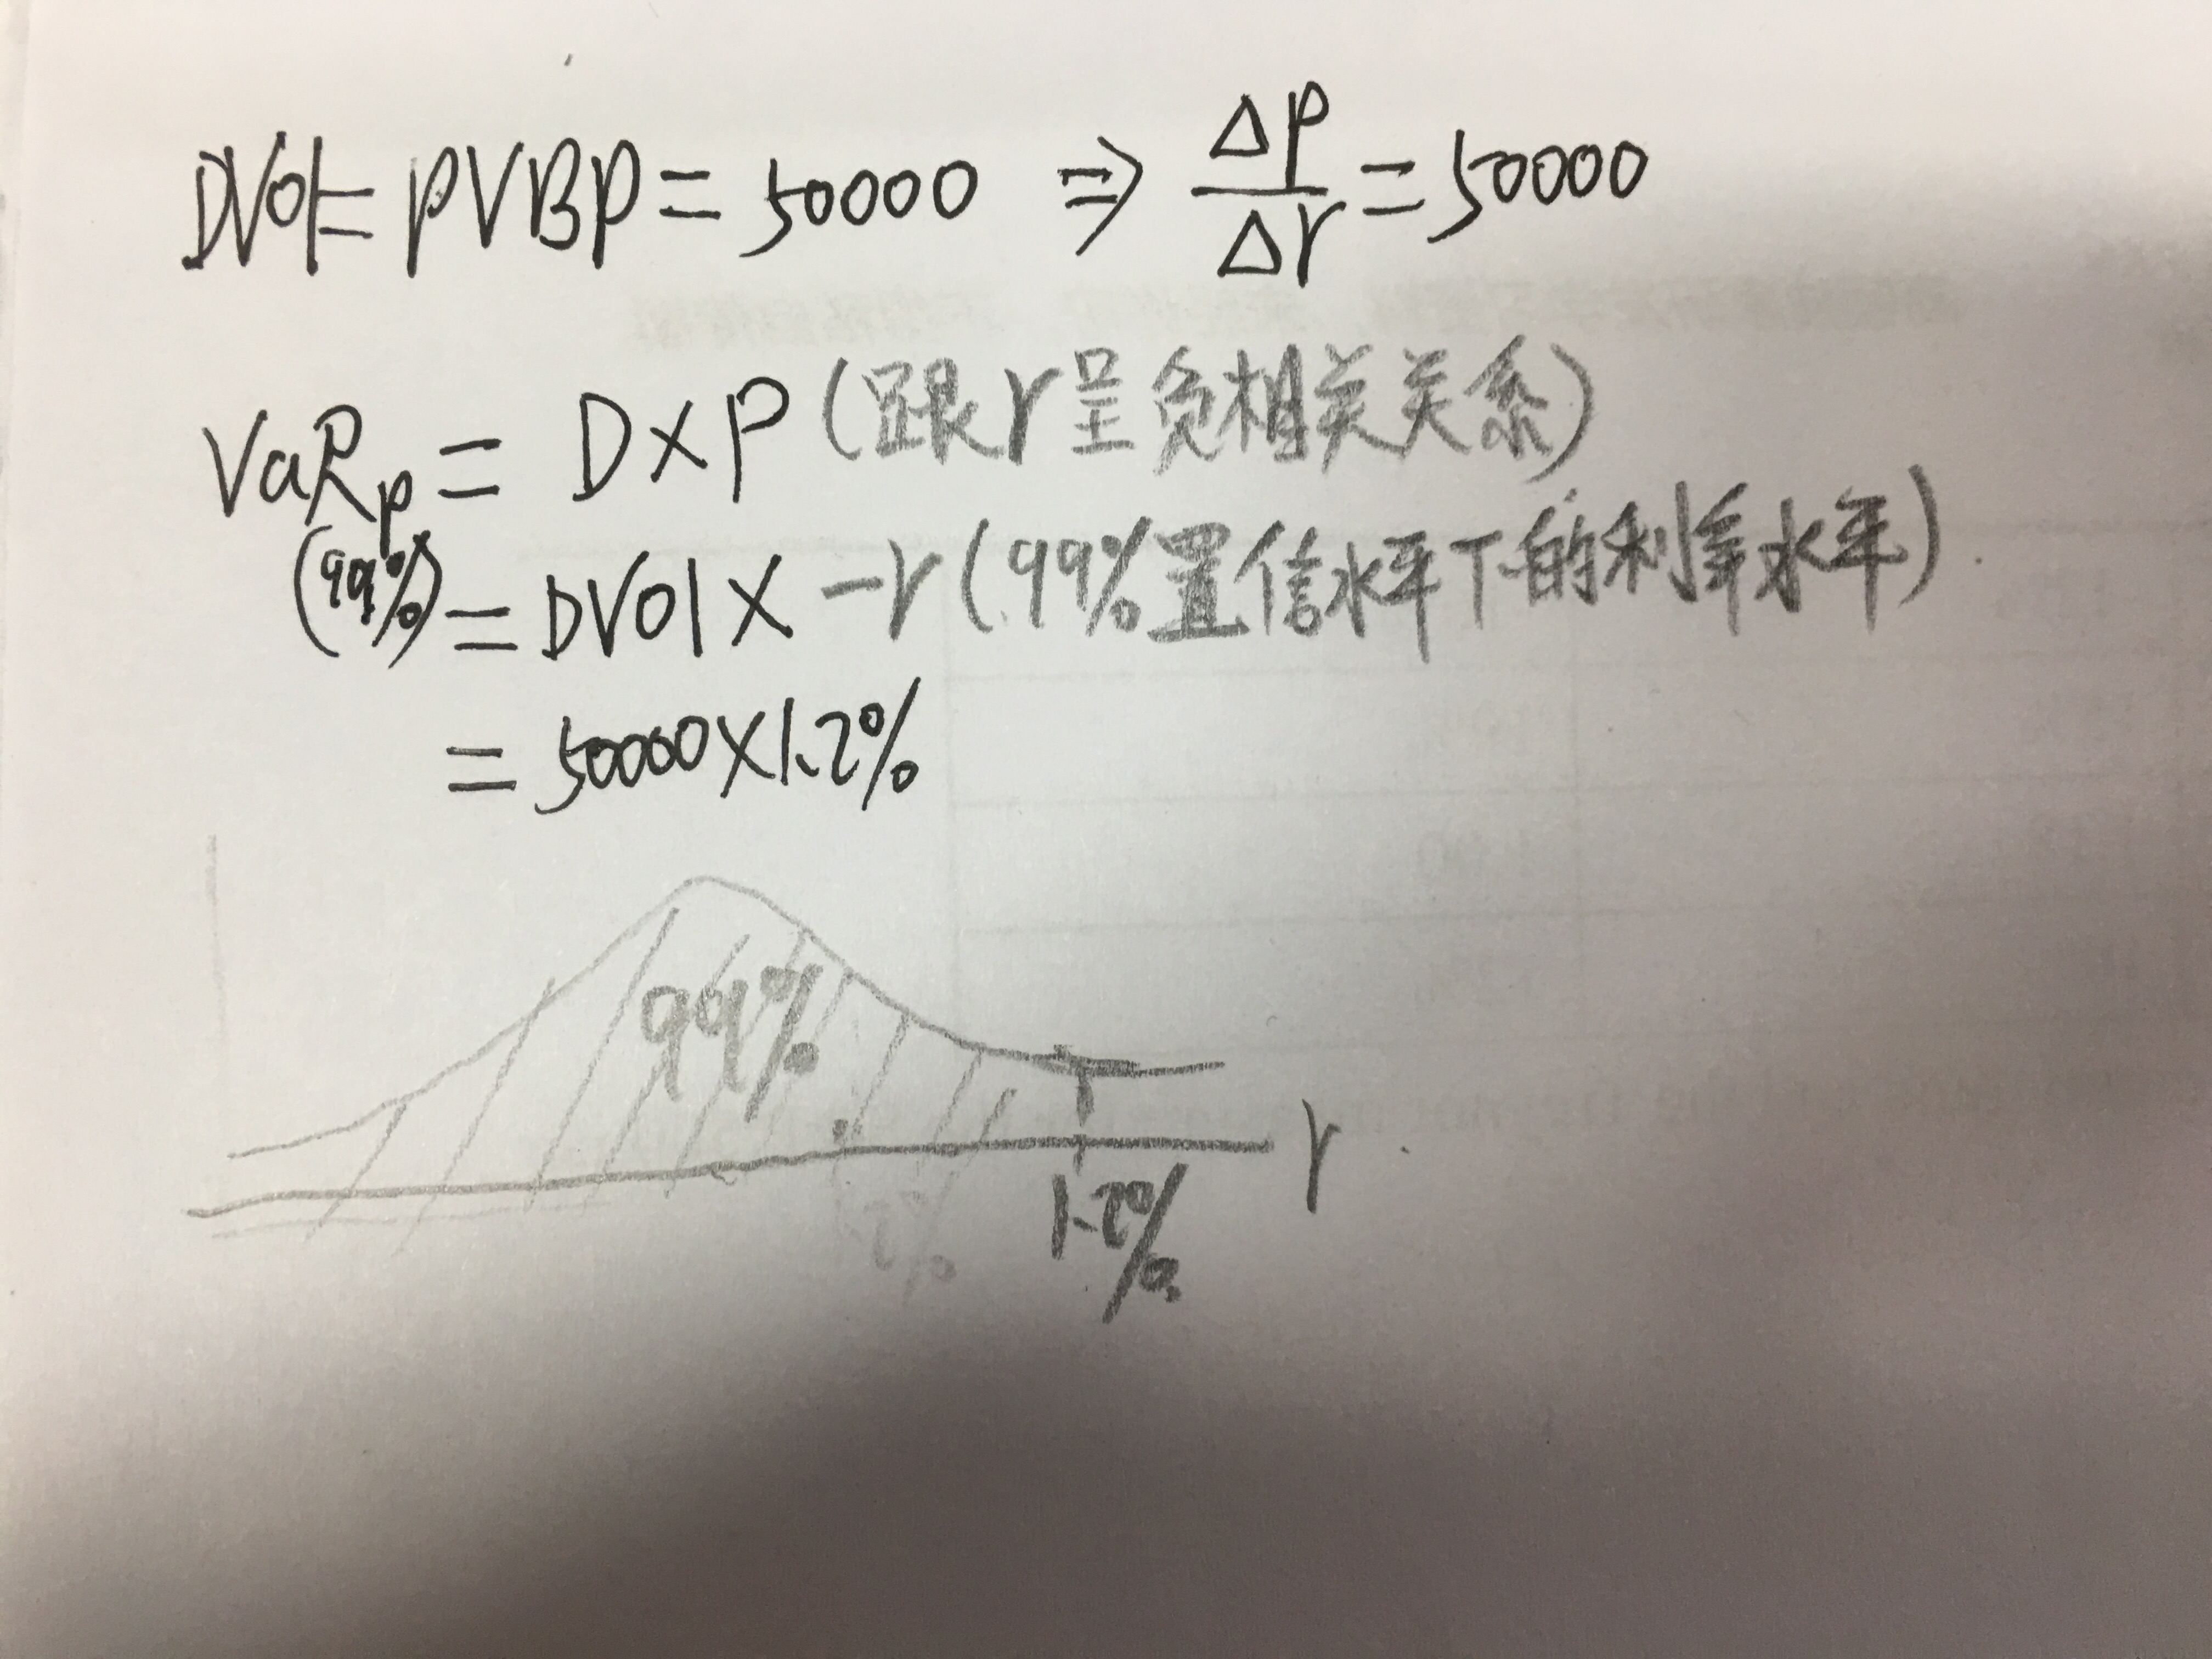 DV01 = PVBP = 50000 ⇒ ΔP/Δr = 50000
VaRp = D×P (跟r呈负相关关系)
(99%) = DV01 × -r (99%置信水平下的利率水平)
= 50000×1.2%
99%
r
1.2%